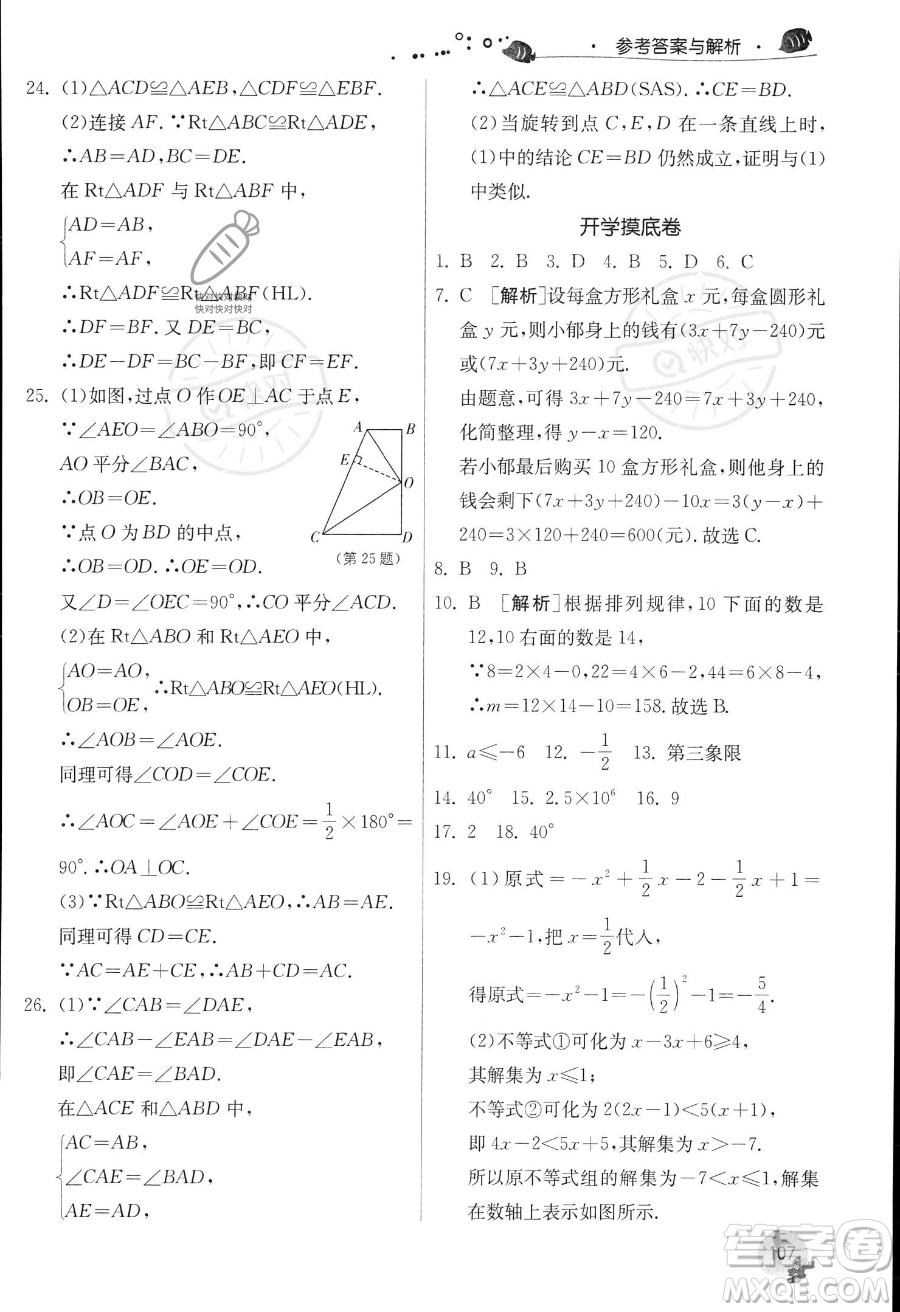 · 参考答案与解析 ·
24. (1)△ACD≌△AEB,△CDF≌△EBF.
(2)连接 AF. ∵Rt△ABC≌Rt△ADE,
∴AB=AD,BC=DE.
在 Rt△ADF 与 Rt△ABF 中,
AD=AB,
AF=AF,
∴Rt△ADF≌Rt△ABF(HL).
∴DF=BF. 又 DE=BC,
∴DE−DF=BC−BF,即 CF=EF.
快对快对快对
快对快对快对
25. (1)如图,过点 O 作 OE⊥AC 于点 E,
∵∠AEO=∠ABO=90°,
AO 平分∠BAC,
∴OB=OE.
∵点 O 为 BD 的中点,
∴OB=OD. ∴OE=OD.
又∠D=∠OEC=90°,∴CO 平分∠ACD.
A B
E
O
C D
(第 25 题)
(2)在 Rt△ABO 和 Rt△AEO 中,
AO=AO,
OB=OE,
∴Rt△ABO≌Rt△AEO(HL).
∴∠AOB=∠AOE.
同理可得∠COD=∠COE.
∴∠AOC=∠AOE+∠COE=1/2×180°=
90°. ∴OA⊥OC.
(3)∵Rt△ABO≌Rt△AEO,∴AB=AE.
同理可得 CD=CE.
∵AC=AE+CE,∴AB+CD=AC.
26. (1)∵∠CAB=∠DAE,
∴∠CAB−∠EAB=∠DAE−∠EAB,
即∠CAE=∠BAD.
在△ACE 和△ABD 中,
AC=AB,
∠CAE=∠BAD,
AE=AD,
∴△ACE≌△ABD(SAS). ∴CE=BD.
(2)当旋转到点 C,E,D 在一条直线上时,
(1)中的结论 CE=BD 仍然成立,证明与(1)
中类似.
开学摸底卷
1. B 2. B 3. D 4. B 5. D 6. C
7. C [解析]设每盒方形礼盒 x 元,每盒圆形礼
盒 y 元,则小郁身上的钱有(3x+7y−240)元
或(7x+3y+240)元.
由题意,可得 3x+7y−240=7x+3y+240,
化简整理,得 y−x=120.
若小郁最后购买 10 盒方形礼盒,则他身上的
钱会剩下(7x+3y+240)−10x=3(y−x)+
240=3×120+240=600(元). 故选 C.
8. B 9. B
10. B [解析]根据排列规律,10 下面的数是
12,10 右面的数是 14,
∵8=2×4−0,22=4×6−2,44=6×8−4,
∴m=12×14−10=158. 故选 B.
11. a≤−6 12. −1/2 13. 第三象限
14. 40° 15. 2.5×10⁶ 16. 9
17. 2 18. 40°
19. (1)原式=−x²+1/2x−2−1/2x+1=
−x²−1,把 x=1/2代入,
得原式=−x²−1=−(1/2)²−1=−5/4.
(2)不等式①可化为 x−3x+6≥4,
其解集为 x≤1;
不等式②可化为 2(2x−1)<5(x+1),
即 4x−2<5x+5,其解集为 x>−7.
所以原不等式组的解集为−7<x≤1,解集
在数轴上表示如图所示.
107